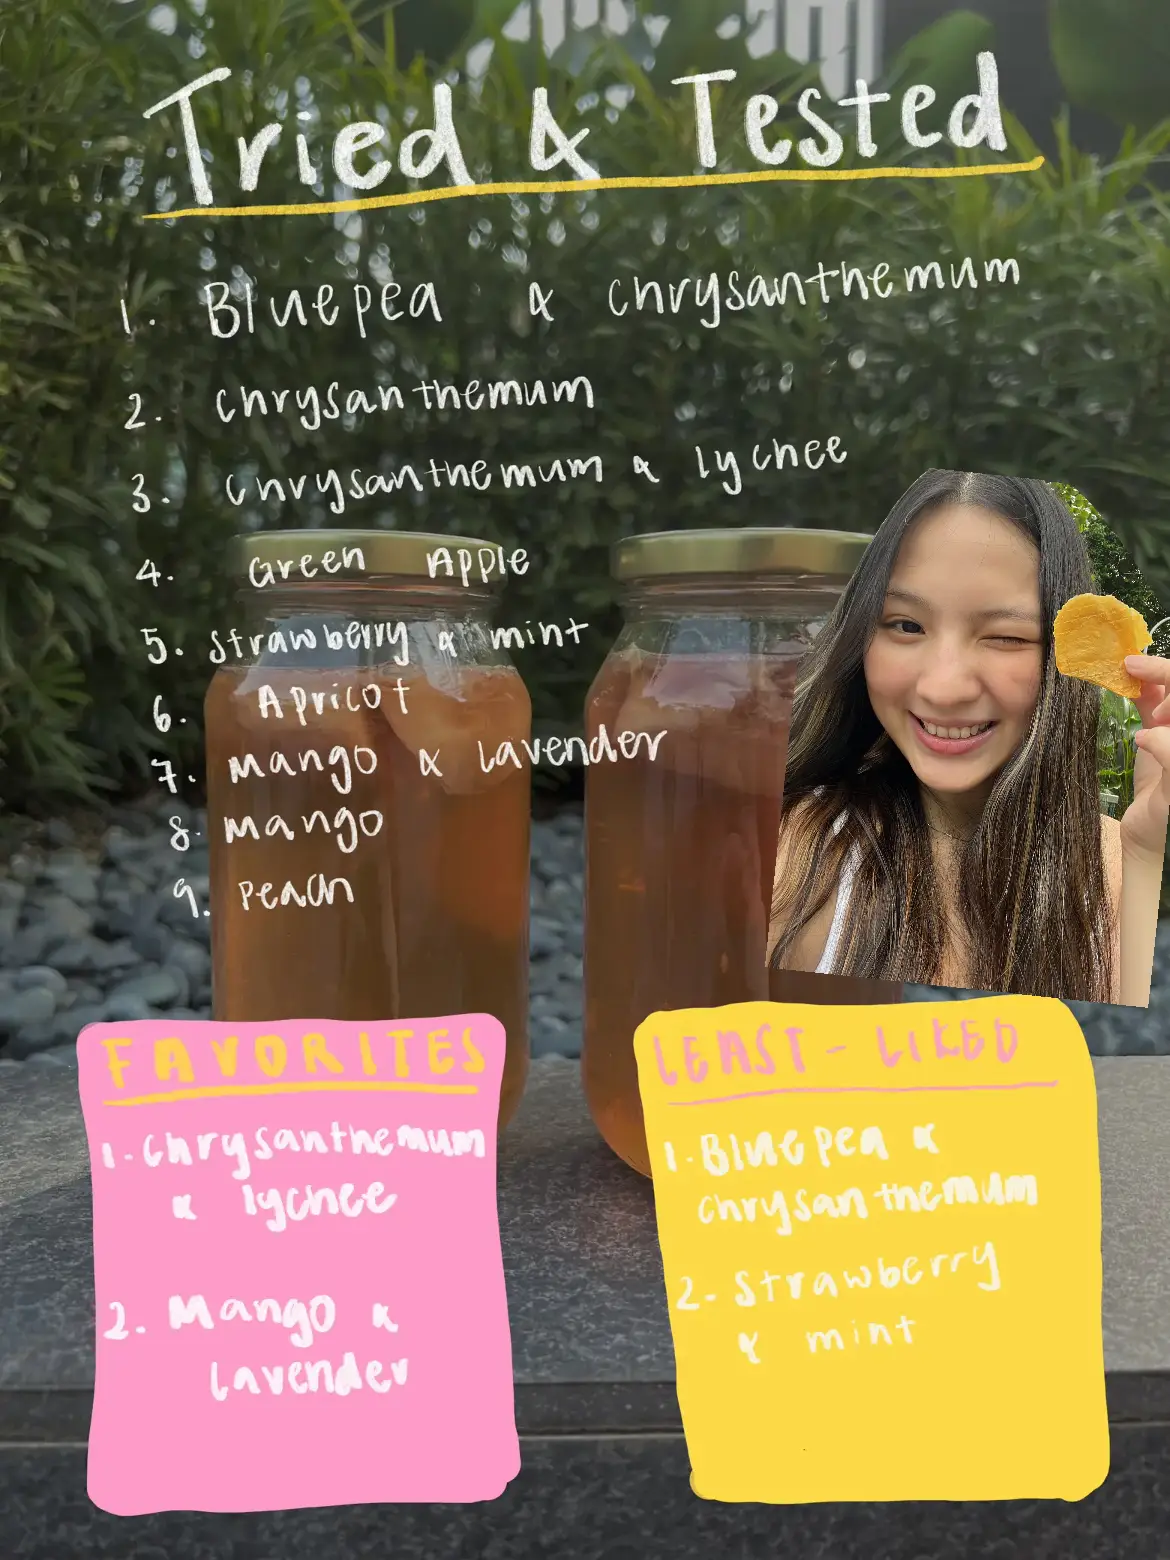 Tried & Tested
1. Bluepea & chrysanthemum
2. chrysanthemum
3. chrysanthemum & lychee
4. Green Apple
5. strawberry & mint
6. Apricot
7. mango & lavender
8. mango
9. peach
FAVORITES
1. chrysanthemum
& lychee
2. Mango &
lavender
LEAST-LIKED
1. Bluepea &
chrysanthemum
2. strawberry
& mint